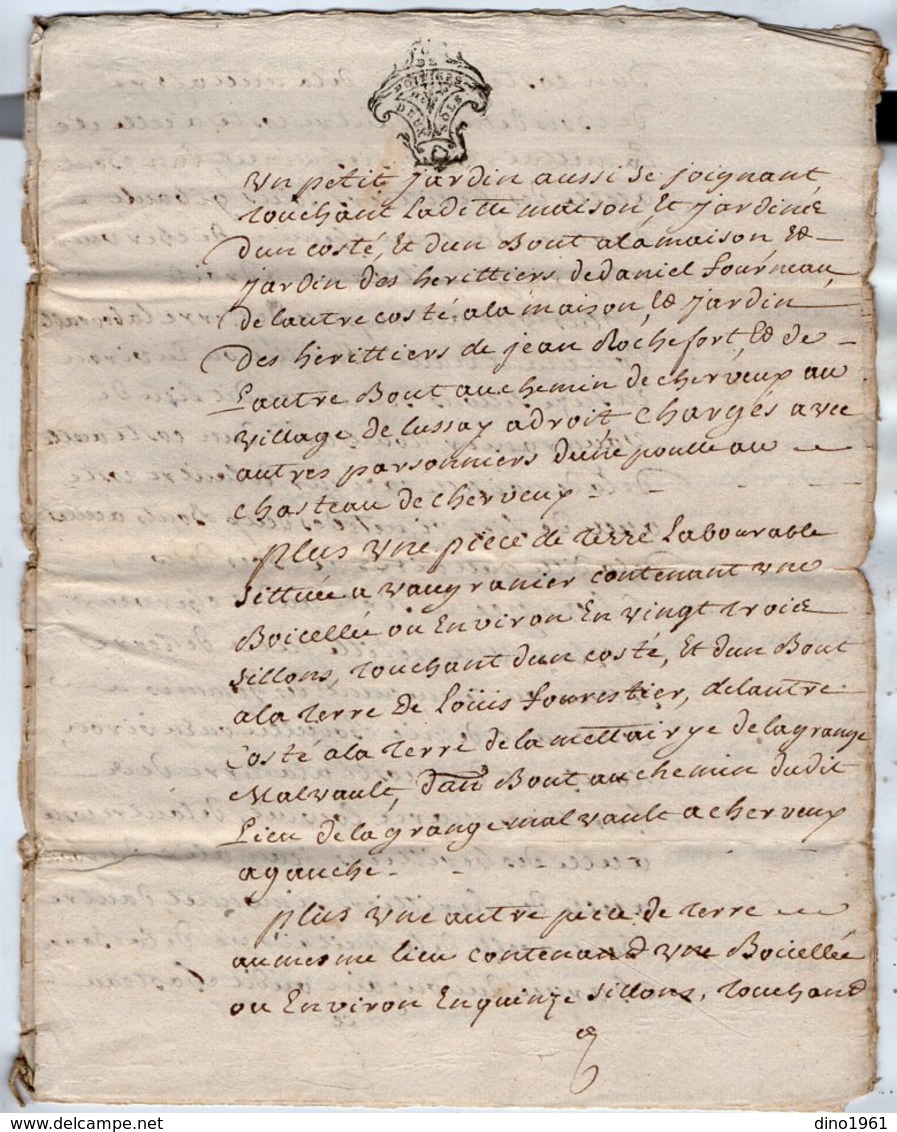 G. DE
POITIERS
DEUX SOLS
Un petit jardin aussi se joignant
touchant ladette maison, et jardine
dun costé, et dun Bout ala maison et
jardin des herittiers de daniel fourneau,
de lautre costé ala maison, et jardin
des herittiers de jean Rochefort, et de
Lautre Bout au chemin de cherveux au
village de lussay adroit Chargés avec
autres parsonniers dune poulle au
chasteau de cherveux -
plus une piece de terre Labourable
sittuée a vaugranier contenant une
Boicellée ou Environ En vingt trois
sillons, touchant dun costé, et dun Bout
ala terre de Loüis fourestier, de lautre
costé ala terre de la mettairye de la grange
Malvault, dau Bout au chemin dudit
Lieu de la grange malvault a cherveux
a gauche - -
plus une autre piece de terre
au mesme lieu contenand une Boicellée
ou Environ En quinze sillons, touchand
dino1961